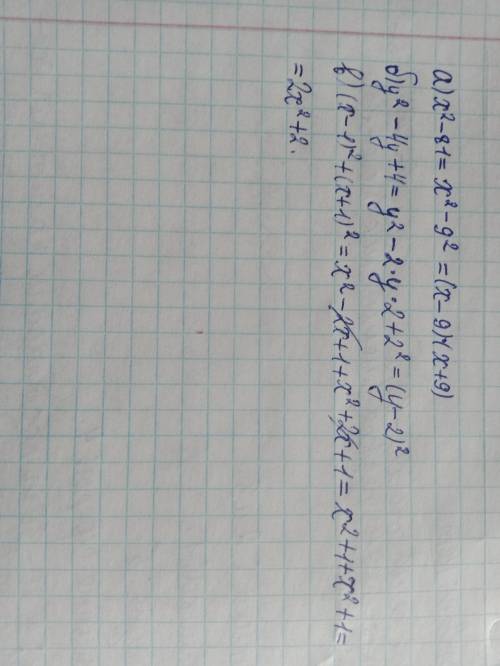 а) x² - 81 = x² - 9² = (x - 9)·(x + 9)
б) y² - 4y + 4 = y² - 2·y·2 + 2² = (y - 2)²
в) (x - 1)² + (x + 1)² = x² - 2x + 1 + x² + 2x + 1 = x² + 1 + x² + 1 =
= 2x² + 2.